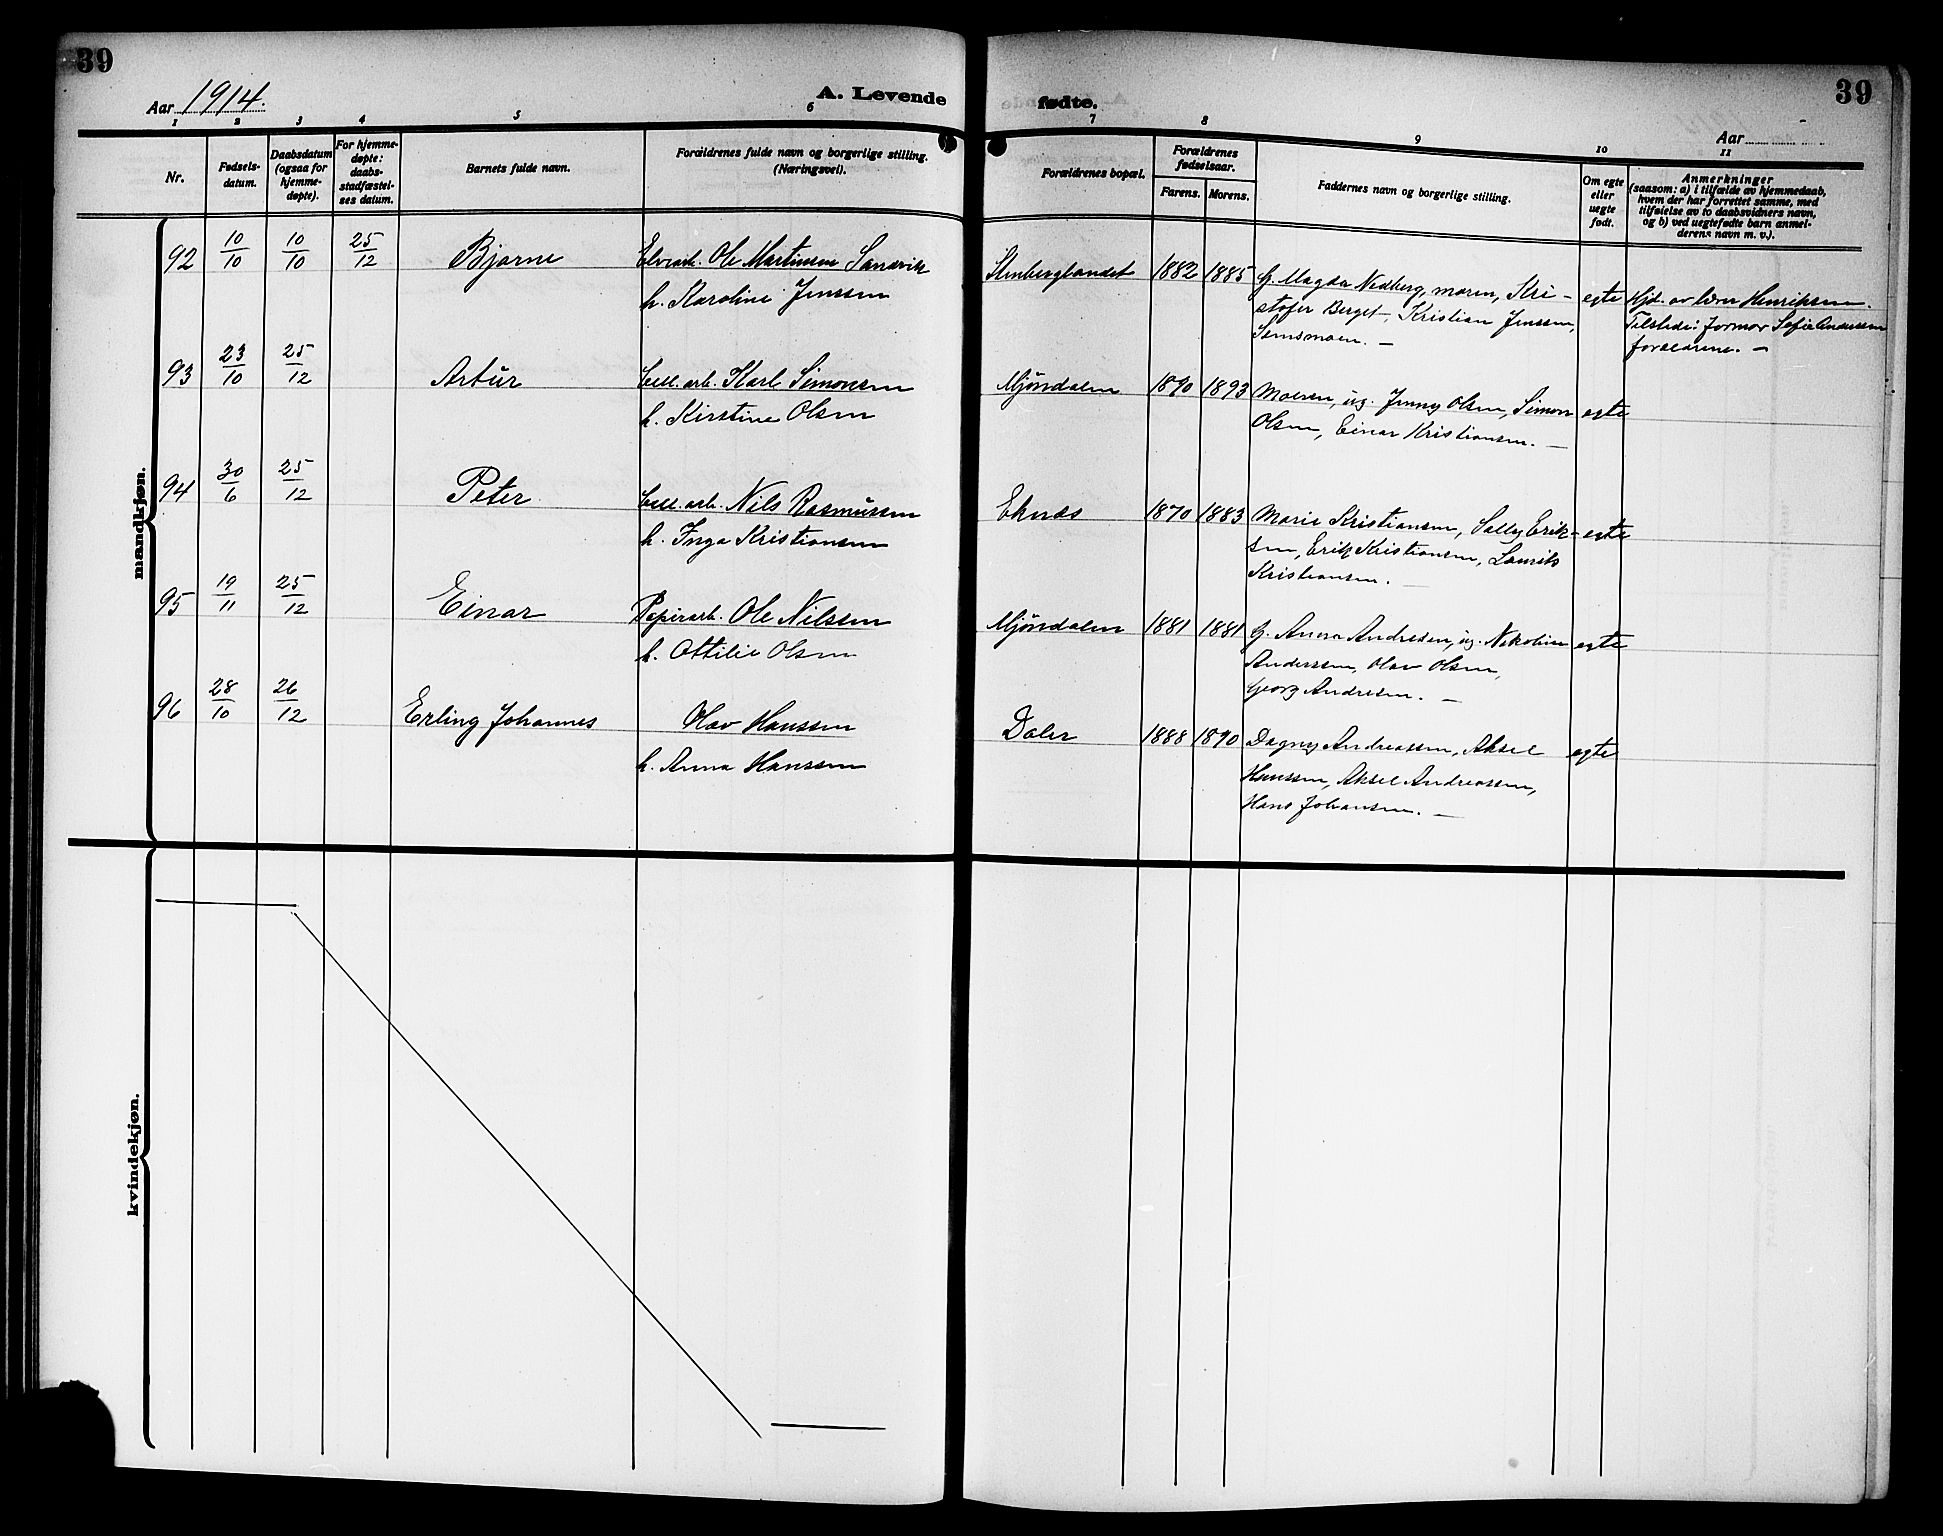 39
Aar 1914.
A. Levende
1 2 3 4 5 6
Nr.
Fødsels-
datum.
Daabsdatum
(ogsaa for
hjemme-
døpte).
For hjemme-
døpte:
daabs-
stadfæstel-
ses datum.
Barnets fulde navn.
Forældrenes fulde navn og borgerlige stilling.
(Næringsvei).
mandkjøn.
92 10/10 10/10 25/12 Bjarne Elvearb. Ole Martinsen Sandvik
h. Karoline Jenssen
93 23/10 25/12 Artur Cell. arb. Karl Simonsen
h. Kirstine Olsen
94 30/6 25/12 Peter Cell. arb. Nils Rasmussen
h. Inga Kristiansen
95 19/11 25/12 Einar Papirarb. Ole Nilssen
h. Ottilie Olsen
96 28/10 26/12 Erling Johannes Olav Hanssen
h. Anna Hanssen
kvindekjøn.
39
fødte.
Aar
7 8 9 10 11
Forældrenes bopæl.
Forældrenes
fødselsaar.
Farens. Morens.
Faddernes navn og borgerlige stilling.
Om egte
eller
uegte
født.
Anmerkninger
(saasom: a) i tilfælde av hjemmedaab,
hvem der har forrettet samme, med
tilføielse av to daabsvidners navn,
og b) ved uegtefødte barn anmel-
derens navn m. v.).
Stenberglandet 1882 1885 G. Magda Nedberg, moren, Kri-
stofer Berget, Kristian Jenssen,
egte
Hjd. av lærer Henriksen.
Tilstede: farmor Sofie Anderssen
forældrene. —
Mjøndalen 1890 1893 Moren, ug. Jenny Olsen, Simon
Olsen, Einar Kristiansen. —
egte
Eknes 1870 1883 Marie Kristiansen, Sally Erik-
sen, Erik Kristiansen, Laurits
Kristiansen. —
egte
Mjøndalen 1881 1881 G. Anna Andresen, ug. Nikoline
Anderssen, Olav Olsen,
Georg Andresen. —
egte
Daler 1888 1890 Dagny Andreassen, Aksel
Hanssen, Aksel Andreassen,
Hans Johansen. —
egte